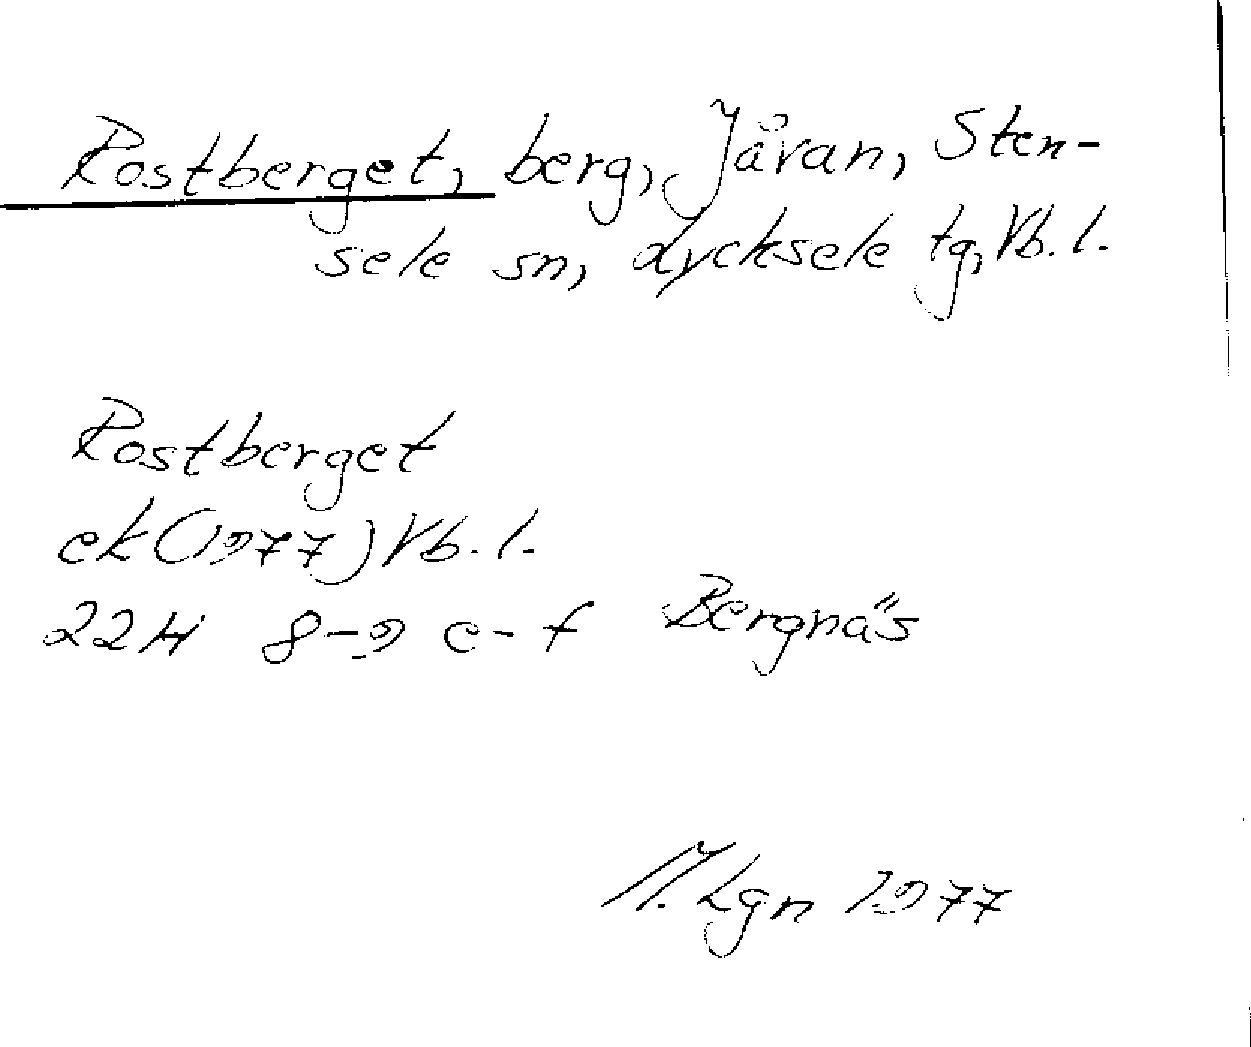 Rostberget, berg, Jåvan, Sten-
sele sn, Lycksele tg, Vb. l.
Rostberget
ek (1977) Vb. l.
22H 8-9 e-f Bergnäs
M. Lgn 1977